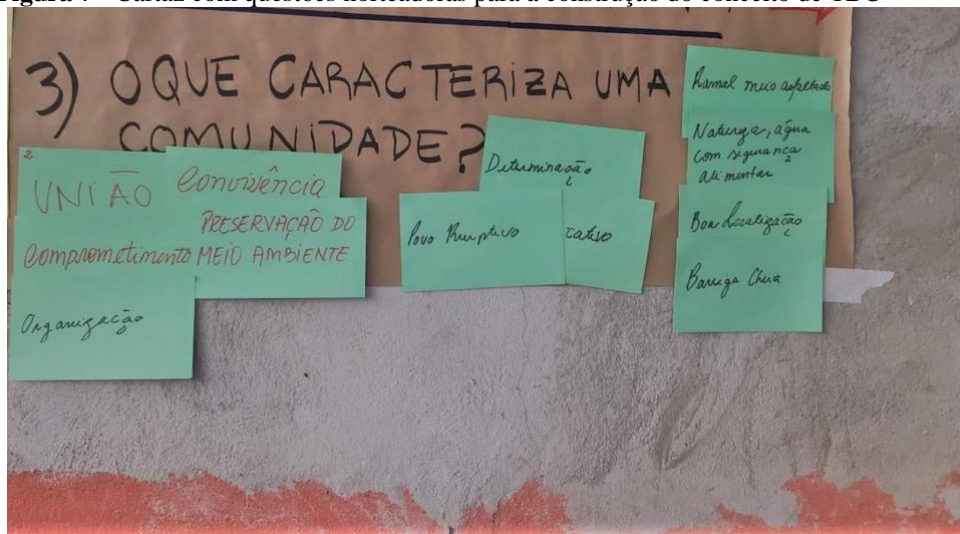 3) O QUE CARACTERIZA UMA
COMUNIDADE?
UNIÃO
Convivência
Comprometimento
PRESERVAÇÃO DO
MEIO AMBIENTE
Organização
Determinação
Povo
cativo
Ramal meio asfaltado
Natureza, água
com segurança
alimentar
Boa Localização
Barriga Cheia